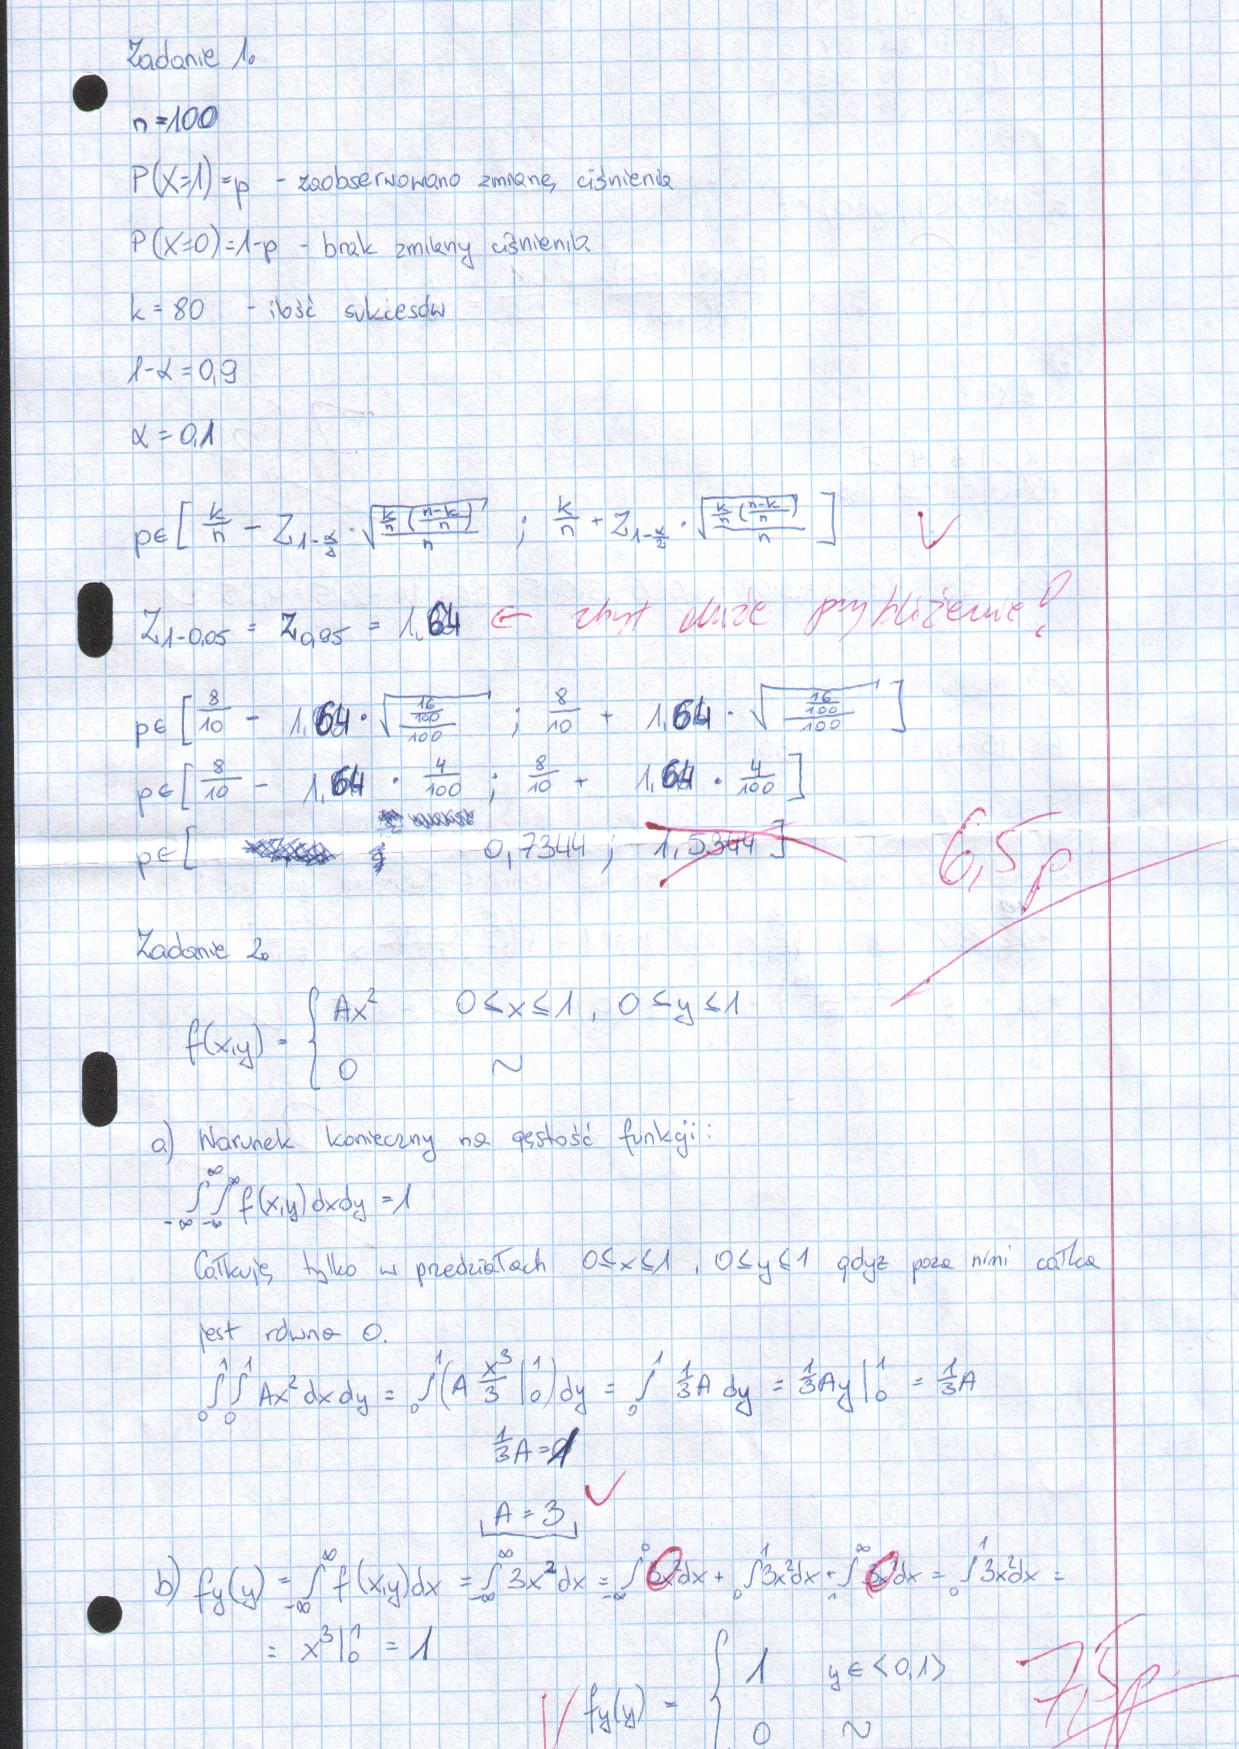 Zadanie 1.
n=100
P(X=1)=p - zaobserwowano zmianę ciśnienia
P(X=0)=1-p - brak zmiany ciśnienia
k=80 - ilość sukcesów
1-α=0,9
α=0,1
p∈[k/n - Z_{1-α/2} · √(k/n((n-k)/n)/n) ; k/n + Z_{1-α/2} · √(k/n((n-k)/n)/n)] ✓
Z_{1-0,05} = Z_{0,95} = 1,64 ← zbyt duże przybliżenie?
p∈[8/10 - 1,64 · √((16/100)/100) ; 8/10 + 1,64 · √((16/100)/100)]
p∈[8/10 - 1,64 · 4/100 ; 8/10 + 1,64 · 4/100]
p∈[ 0,7344 ; 1,5344] 6,5p
Zadanie 2.
f(x,y) = { Ax² 0≤x≤1, 0≤y≤1
0 ~
a) Warunek konieczny na gęstość funkcji:
∫_{-∞}^{∞}∫_{-∞}^{∞} f(x,y)dxdy = 1
Całkuję tylko w przedziałach 0≤x≤1, 0≤y≤1 gdyż poza nimi całka
jest równa 0.
∫_0^1∫_0^1 Ax²dxdy = ∫_0^1(A x³/3 |_0^1)dy = ∫_0^1 1/3A dy = 1/3Ay|_0^1 = 1/3A
1/3A=1
A=3 ✓
b) fy(y) = ∫_{-∞}^{∞} f(x,y)dx = ∫_{-∞}^{∞} 3x²dx = ∫_{-∞}^0 3x²dx + ∫_0^1 3x²dx + ∫_1^{∞} 3x²dx = ∫_0^1 3x²dx =
= x³|_0^1 = 1
fy(y) = { 1 y∈<0,1> 7,5p
0 ~